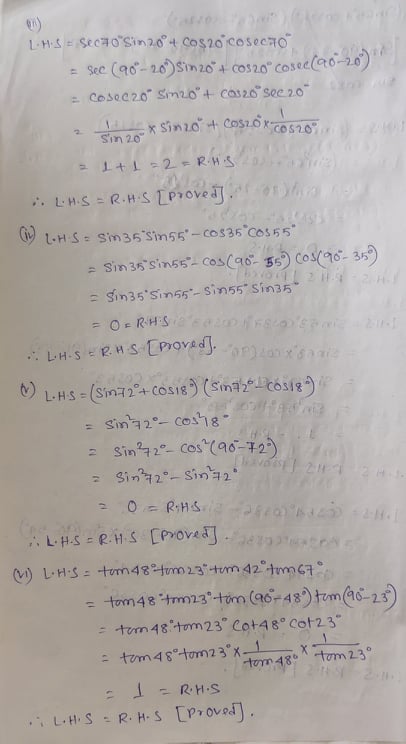 (iii)
L.H.S = sec70° sin20° + cos20° cosec70°
= sec (90°-20°) sin20° + cos20° cosec(90°-20°)
= cosec20° sin20° + cos20° sec20°
= 1/sin20° × sin20° + cos20° × 1/cos20°
= 1 + 1 = 2 = R.H.S
∴ L.H.S = R.H.S [Proved].
(iv) L.H.S = sin35° sin55° - cos35° cos55°
= sin35° sin55° - cos(90°-55°) cos(90°-35°)
= sin35° sin55° - sin55° sin35°
= 0 = R.H.S
∴ L.H.S = R.H.S [Proved].
(v) L.H.S = (sin72° + cos18°) (sin72° - cos18°)
= sin²72° - cos²18°
= sin²72° - cos²(90°-72°)
= sin²72° - sin²72°
= 0 = R.H.S
∴ L.H.S = R.H.S [Proved].
(vi) L.H.S = tan48° tan23° tan42° tan67°
= tan48° tan23° tan(90°-48°) tan(90°-23°)
= tan48° tan23° cot48° cot23°
= tan48° tan23° × 1/tan48° × 1/tan23°
= 1 = R.H.S
∴ L.H.S = R.H.S [Proved].